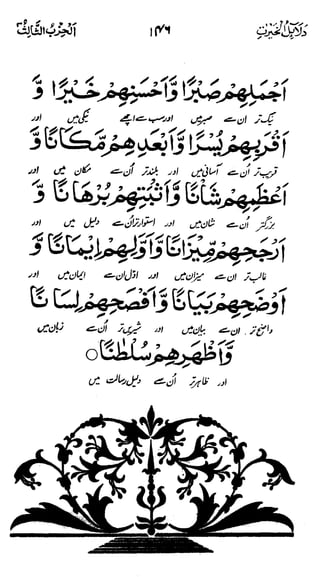 دلائل الخیرات ۱۴۶ الحزب الثالث
اَجْمَلِهِمْ صَبْرًا وَّاَحْسَنِهِمْ خَيْرًا وَّ
نیک تر ان سے صبر میں اور سب سے اچھے نیکی میں اور
اَقْرَبِهِمْ يُسْرًا وَّاَبْعَدِهِمْ مَّكَانًا وَّ
قریب تر اُن سے آسانی میں اور بلند تر اُن سے مکان میں اور
اَعْظَمِهِمْ شَانًا وَّاَثْبَتِهِمْ بُرْهَانًا وَّ
بزرگتر اُن سے شان میں اور استوار تر اُن سے دلیل میں اور
اَرْجَحِهِمْ مِّيْزَانًا وَّاَوَّلِهِمْ اِيْمَانًا وَّ
غالب تر ان سے میزان میں اور اوّل ان سے ایمان میں اور
اَوْضَحِهِمْ بَيَانًا وَّاَفْصَحِهِمْ لِسَانًا
واضح تر ان سے بیان میں اور شیریں تر اُن سے زبان میں
وَّاَظْهَرِهِمْ سُلْطٰنًا○
اور ظاہر تر اُن سے دلیل رسالت میں